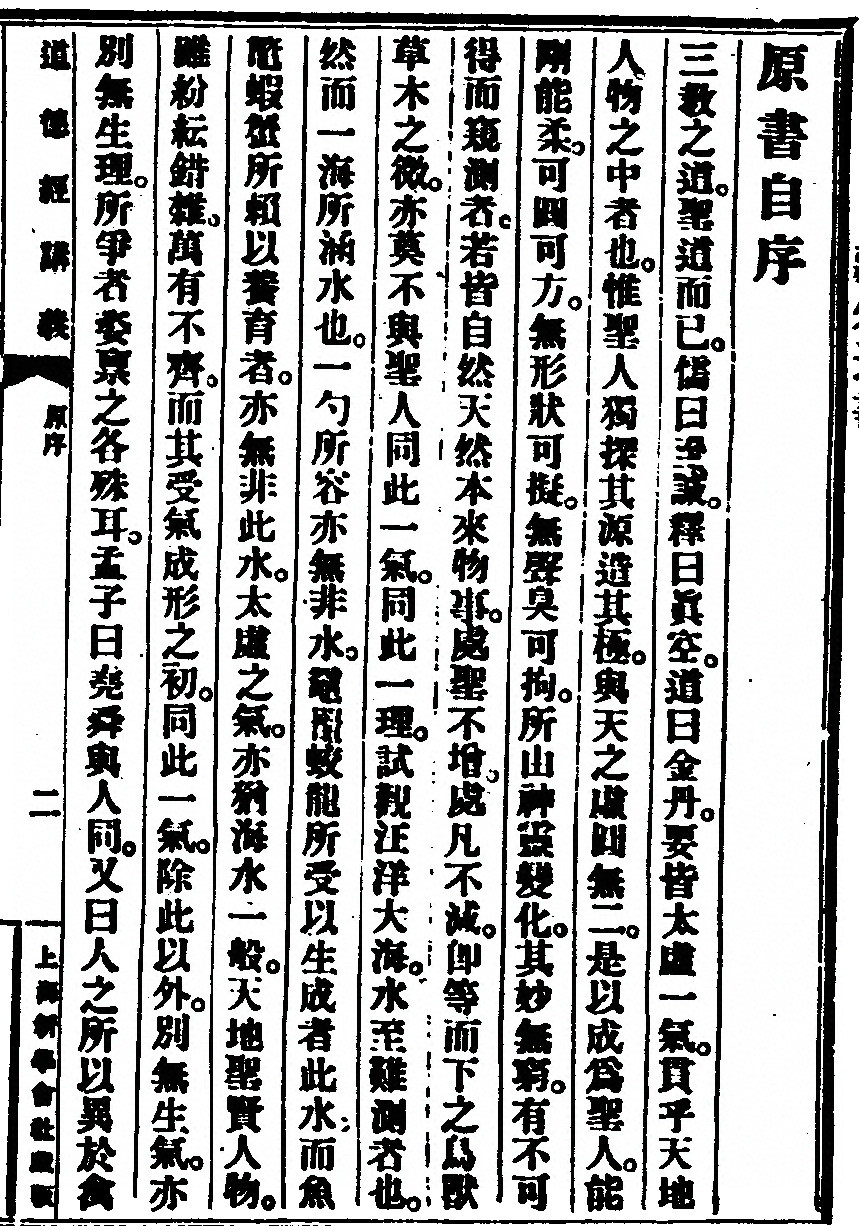 原書自序
三教之道。聖道而已。儒曰至誠。釋曰眞空。道曰金丹。要皆太虛一氣。貫乎天地
人物之中者也。惟聖人獨探其源造其極。與天之虛圓無二。是以成爲聖人。能
剛能柔。可圓可方。無形狀可擬。無聲臭可拘。所由神靈變化。其妙無窮。有不可
得而窺測者。若皆自然天然本來物事。處聖不增。處凡不減。即等而下之鳥獸
草木之微。亦莫不與聖人同此一氣。同此一理。試觀汪洋大海。水至難測者也。
然而一海所涵水也。一勺所容亦無非水。黿鼉蛟龍所受以生成者此水。而魚
鼈蝦蟹所賴以養育者。亦無非此水。太虛之氣。亦猶海水一般。天地聖賢人物。
雖紛紜錯雜。萬有不齊。而其受氣成形之初。同此一氣。除此以外。別無生氣。亦
別無生理。所爭者姿禀之各殊耳。孟子曰堯舜與人同。又曰人之所以異於禽
道德經講義
原序
二
上海新學會社藏版